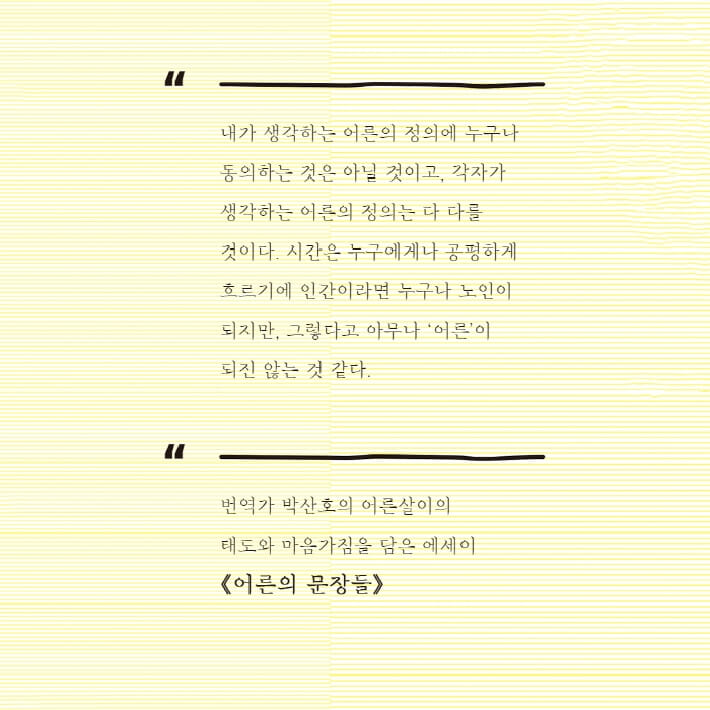 “
내가 생각하는 어른의 정의에 누구나
동의하는 것은 아닐 것이고, 각자가
생각하는 어른의 정의는 다 다를
것이다. 시간은 누구에게나 공평하게
흐르기에 인간이라면 누구나 노인이
되지만, 그렇다고 아무나 ‘어른’이
되진 않는 것 같다.
“
번역가 박산호의 어른살이의
태도와 마음가짐을 담은 에세이
《어른의 문장들》